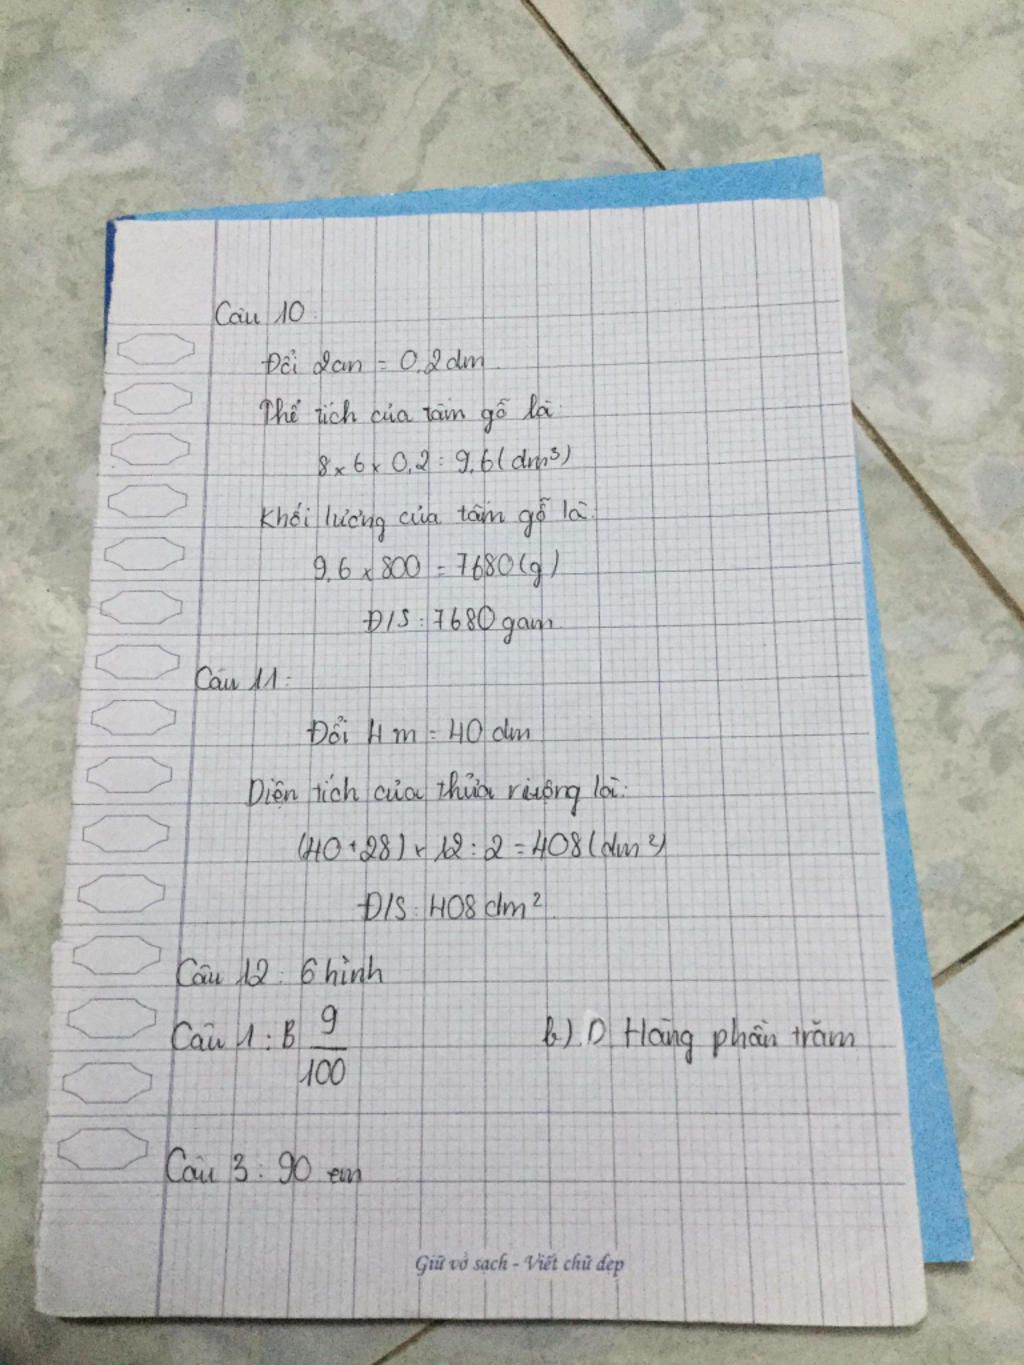 Câu 10:
Đổi 2cm = 0,2dm
Thể tích của tấm gỗ là:
8 x 6 x 0,2 = 9,6 (dm³)
Khối lượng của tấm gỗ là:
9,6 x 800 = 7680 (g)
Đ/S: 7680 gam
Câu 11:
Đổi 4 m = 40 dm
Diện tích của thửa ruộng là:
(40 + 28) x 12 : 2 = 408 (dm²)
Đ/S: 408 dm²
Câu 12: 6 hình
Câu 1: B 9/100 b). D Hàng phần trăm
Câu 3: 90 em
Giữ vở sạch - Viết chữ đẹp